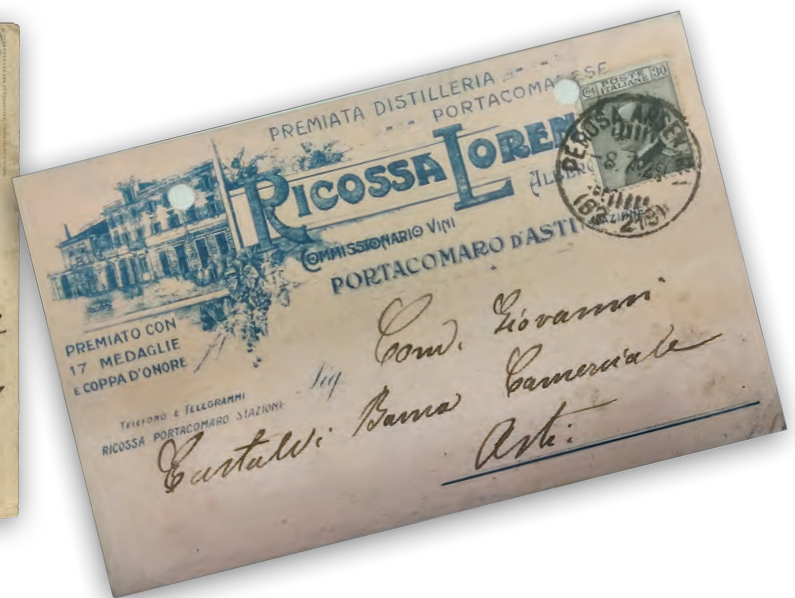 PREMIATA DISTILLERIA
PORTACOMARESE
RICOSSA LOREN
ALBERG
COMMISSIONARIO VINI
STAZIONE
PORTACOMARO D'ASTI
PREMIATO CON
17 MEDAGLIE
E COPPA D'ONORE
TELEFONO E TELEGRAMMI
RICOSSA PORTACOMARO STAZIONE
Ct POSTE 30
ITALIANE
PEROSA ARGEN
Sig
Giovanni
Banca Comerciale
Asti